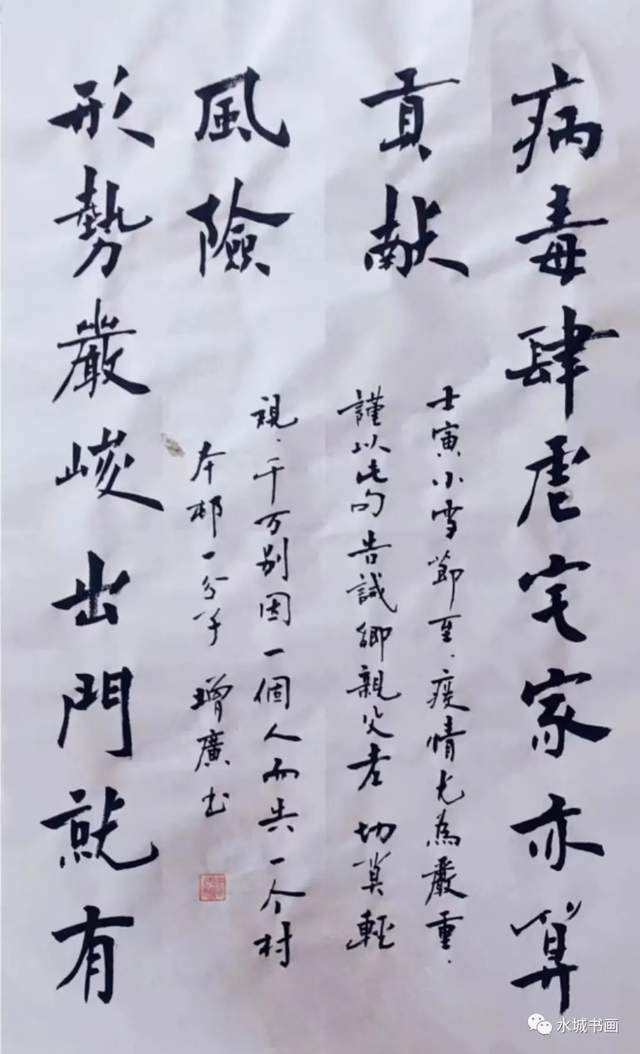 病毒肆虐宅家亦算
貢献
形勢嚴峻出門就有
風險
壬寅小雪節至,疫情尤為嚴重,
謹以此句告誡鄉親父老 切莫輕
視,千万别因一個人而一个村
本邨一分子 增廣书
水城书画